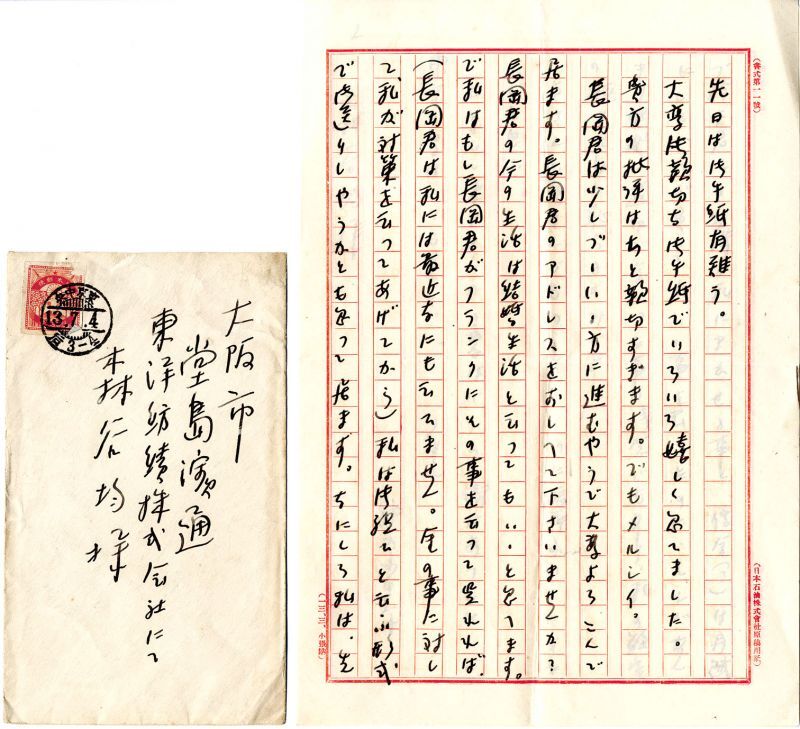 (書式第一一號)
先日は御手紙有難う。
大変御親切な御手紙でいろいろ嬉しく思てました。
貴方の批評はちと親切すぎます。でもメルシイ。
長岡君は少しづゝいゝ方に進むやうで大変よろこんで
居ます。長岡君のアドレスをおしへて下さいませんか?
長岡君の今の生活は結婚生活と云つてもいゝと思てます。
で私はもし長岡君がフランクにその事を云つて呉れれば、
(長岡君は私には最近なにも云てません。金の事に対し
て、私が対策を云つてあげてから)私は と云ふ形式
で御送りしやうかとも思つて居ます。なにしろ私は、先
(日本石油株式會社原稿用紙)
(一三、三、小林納)
大阪市
堂島濱通
東洋紡績株式会社にて
森谷均様
13.7.4